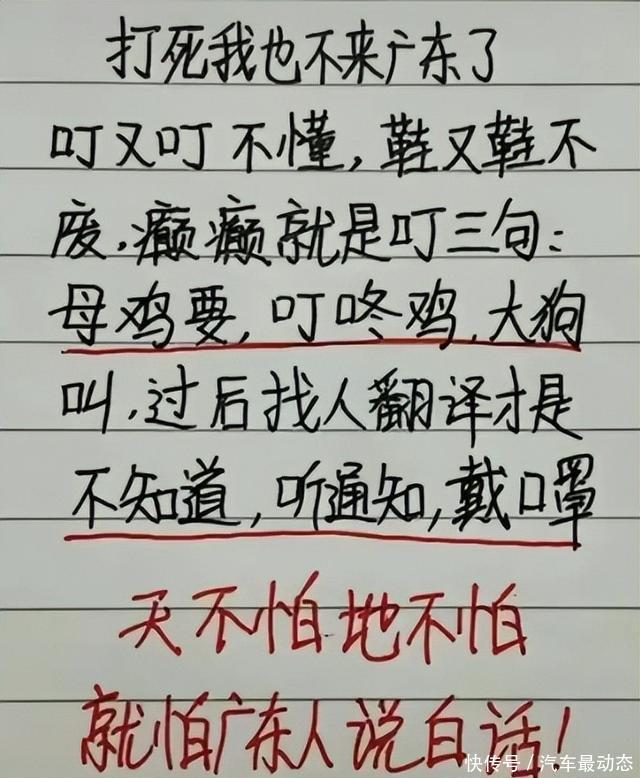 打死我也不来广东了
叮又叮不懂，鞋又鞋不
废，癫癫就是叮三句：
母鸡要，叮咚鸡，大狗
叫，过后找人翻译才是
不知道，听通知，戴口罩
天不怕地不怕
就怕广东人说白话！
快传号／汽车最动态